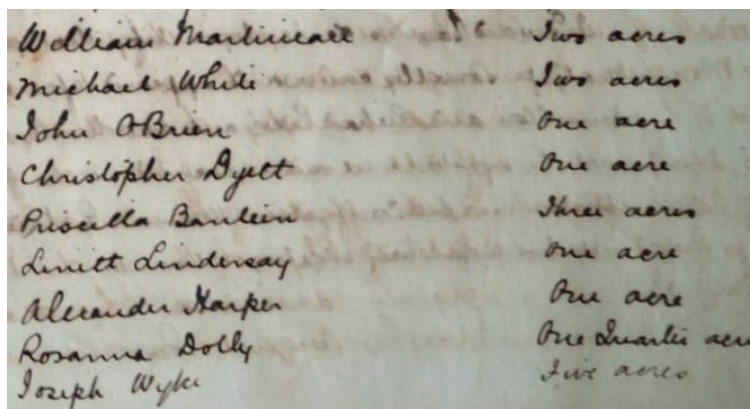 William Martineau Two acres
Michael White Two acres
John OBrien One acre
Christopher Dyett One acre
Priscilla Three acres
Linitt Lindersay One acre
Alexander Harper One acre
Rosanna Dolly One Quarter acre
Joseph Wyke Five acres